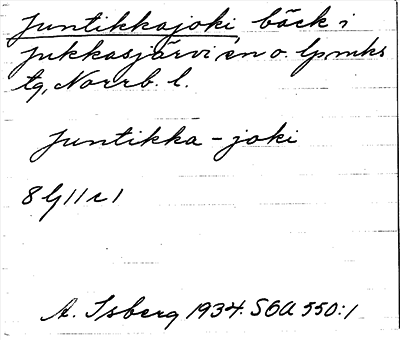 Juntikkajoki, bäck i
Jukkasjärvi sn o. lpmks
tg, Norrb. l.
Juntikka-joki
A. Isberg 1934. SOU 550:1